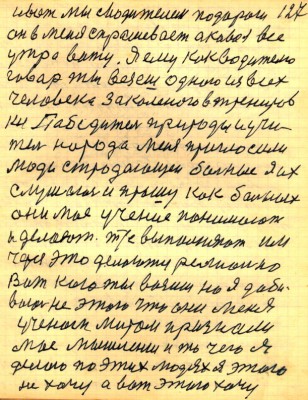 идет мы с водителем по дороги 127
он в меня спрашивает а каков все
утра вату. Я ему как водителю
говар ты везеш одного из всех
человека Закаленого в тренеров
ки Победителя природы и учи
теля народа меня пригласили
люди страдающеи больные я их
слушался и прошу как больных
они мое учение понимают
и делают. т/е выполняют им
через это делаю
Вот кого ты везеш но я доби
вался не этого что они меня
ученого миром признали
мое мышлении и то чего я
делаю по этих людях я этого
не хочу а вот этого хочу